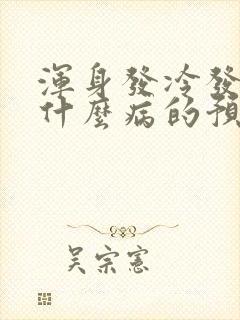 渾身發冷發
什麼病的預
吴宗憲